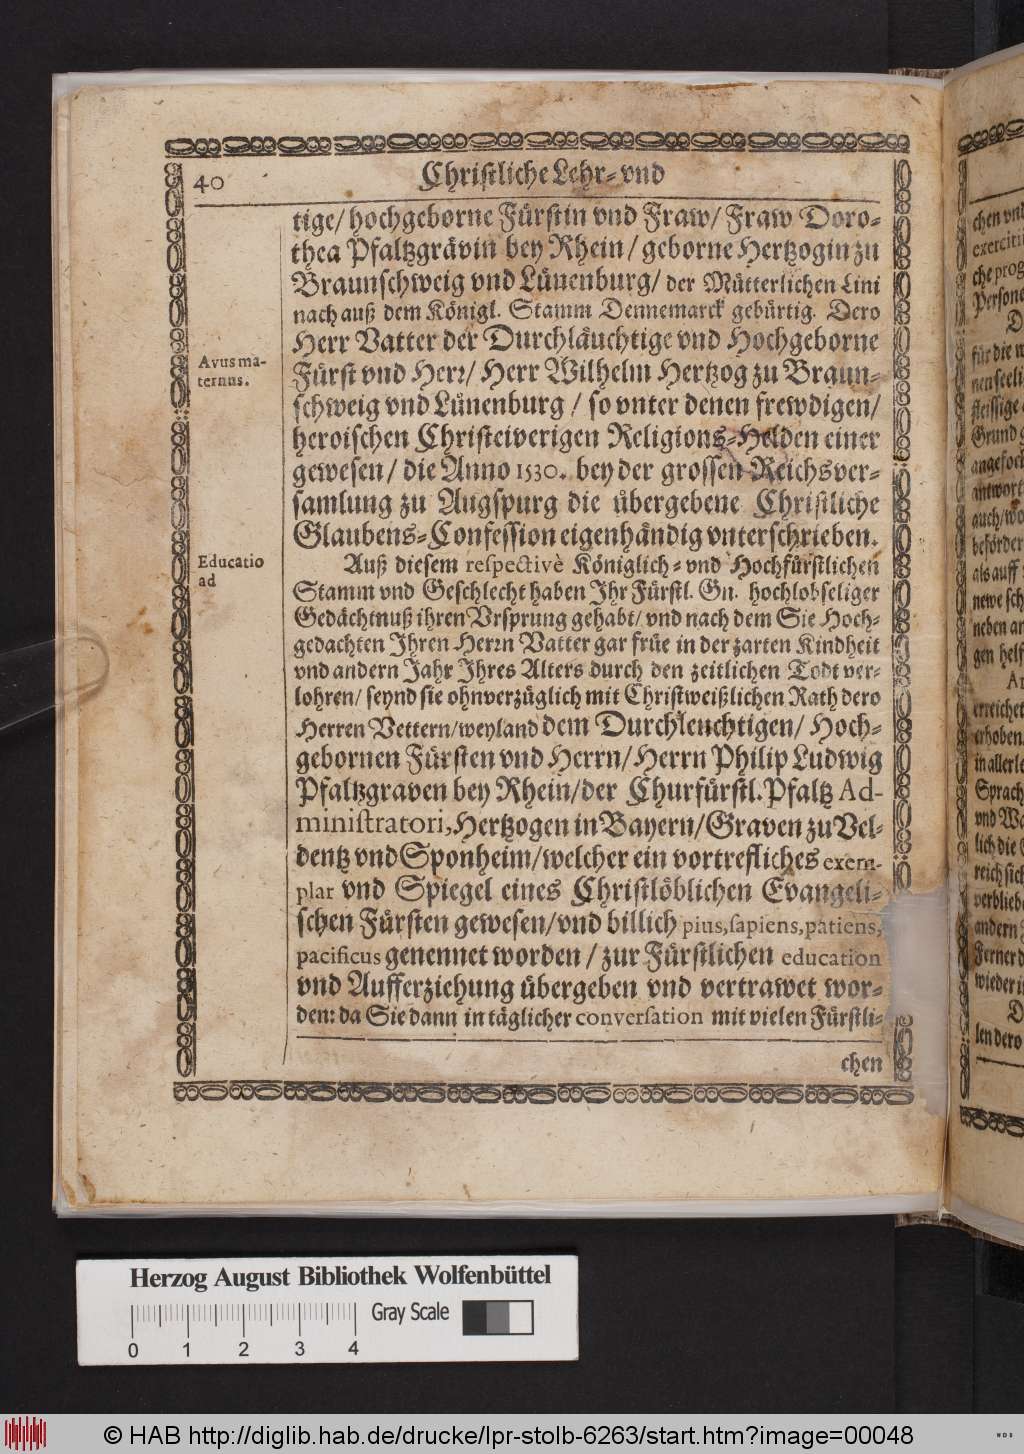 40
Christliche Lehr- vnd
tige/ hochgeborne Fürstin vnd Fraw/ Fraw Doro-
thea Pfaltzgrävin bey Rhein/ geborne Hertzogin zu
Braunschweig vnd Lünenburg/ der Mütterlichen Lini
nach auß dem Königl. Stamm Dennemarck gebürtig. Dero
Herr Vatter der Durchläuchtige vnd Hochgeborne
Avus ma-
ternus.
Fürst vnd Herr/ Herr Wilhelm Hertzog zu Braun-
schweig vnd Lünenburg / so vnter denen frewdigen/
heroischen Christeiverigen Religions-Helden einer
gewesen/ die Anno 1530. bey der grossen Reichsver-
samlung zu Augspurg die übergebene Christliche
Glaubens-Confession eigenhändig vnterschrieben.
Educatio
ad
Auß diesem respectivè Königlich- vnd Hochfürstlichen
Stamm vnd Geschlecht haben Ihr Fürstl. Gn. hochlobseliger
Gedächtnuß ihren Vrsprung gehabt/ vnd nach dem Sie Hoch-
gedachten Ihren Herrn Vatter gar früe in der zarten Kindheit
vnd andern Jahr Ihres Alters durch den zeitlichen Todt ver-
lohren/ seynd sie ohnverzüglich mit Christweißlichen Rath dero
Herren Vettern/ weyland dem Durchleuchtigen/ Hoch-
gebornen Fürsten vnd Herrn/ Herrn Philip Ludwig
Pfaltzgraven bey Rhein/ der Churfürstl. Pfaltz Ad-
ministratori, Hertzogen in Bayern/ Graven zu Vel-
dentz vnd Sponheim/ welcher ein vortrefliches exem-
plar vnd Spiegel eines Christlöblichen Evangeli-
schen Fürsten gewesen/ vnd billich pius, sapiens, patiens,
pacificus genennet worden / zur Fürstlichen education
vnd Aufferziehung übergeben vnd vertrawet wor-
den: da Sie dann in täglicher conversation mit vielen Fürstli-
chen
chen vnd
exercitii
che prog
Persone
für die
nen seeli
fleissige
Grund g
angefoch
antwort
auch/ wo
beförder
als auff
newe sch
neben an
gen helf
erreichet
erhoben.
in allerle
Sprach
vnd We
lich die
reich sich
verbliebe
andern
Ferner d
wieder i
len dero
Herzog August Bibliothek Wolfenbüttel
Gray Scale
0 1 2 3 4
© HAB http://diglib.hab.de/drucke/lpr-stolb-6263/start.htm?image=00048
WDB